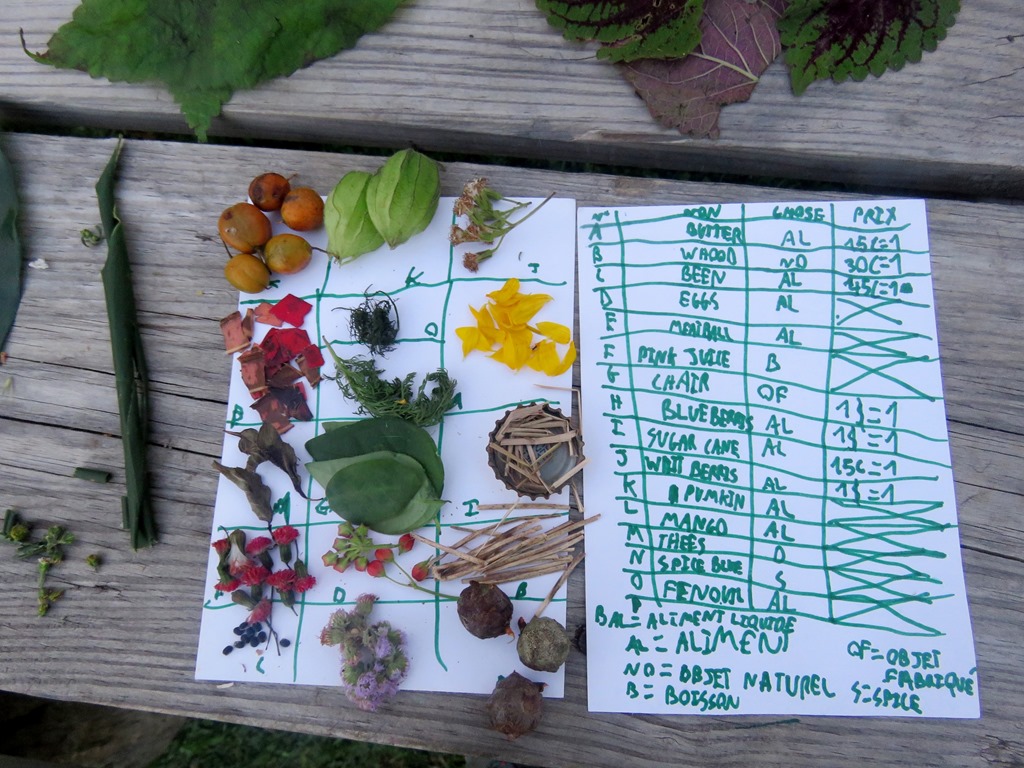 K
J
O
B
M
G
I
D
B
C
N NON CHOSE PRIX
A BUTTER AL 15C=1
B WHOOD NO 30C=1
C BEEN AL 45C=1
D EGGS AL
E MEATBALL AL
F PINK JUICE B
G CHAIR OF
H BLUEBERRIS AL 1}=1
I SUGAR CANE AL 1}=1
J WHIT BERRIS AL 15C=1
K PUMKIN AL 1}=1
L MANGO AL
M THEES O
N SPICE BLUE S
O FENOUIL AL
P
BAL=ALIMENT LIQUIDE
AL=ALIMENT
NO=OBJET NATUREL
B=BOISSON
OF=OBJET
FABRIQUÉ
S=SPICE